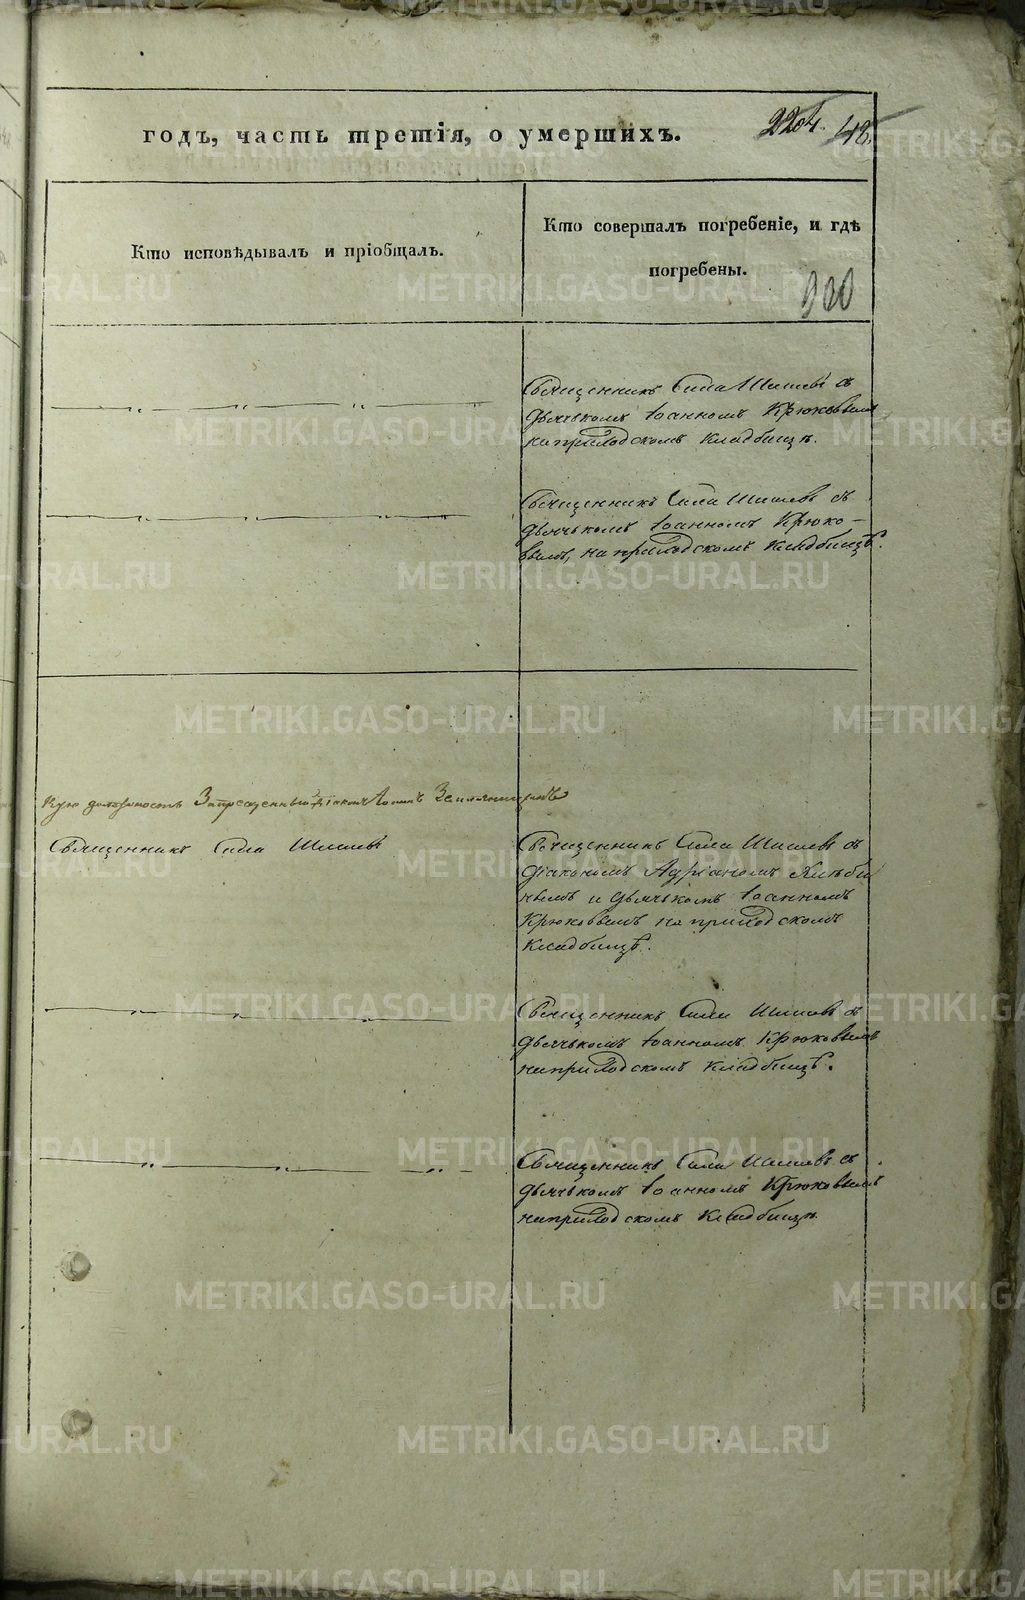 годъ, часть третія, о умершихъ.
2204. 48
Кто исповѣдывалъ и пріобщалъ.
Кто совершалъ погребеніе, и гдѣ
погребены.
900
Священникъ Сила Шишевъ съ
дьячькомъ Іоанномъ Крюковымъ
на приходскомъ кладбищѣ.
Священникъ Сила Шишевъ съ
дьячькомъ Іоанномъ Крюко-
вымъ, на приходскомъ кладбищѣ.
должность Запрещенный діаконъ
Священникъ Сила Шишевъ
Священникъ Сила Шишевъ съ
діакономъ Адріаномъ
и дьячькомъ Іоанномъ
Крюковымъ на приходскомъ
кладбищѣ.
Священникъ Сила Шишевъ съ
дьячькомъ Іоанномъ Крюковымъ
на приходскомъ кладбищѣ.
Священникъ Сила Шишевъ съ
дьячькомъ Іоанномъ Крюковымъ
на приходскомъ кладбищѣ.
METRIKI.GASO-URAL.RU